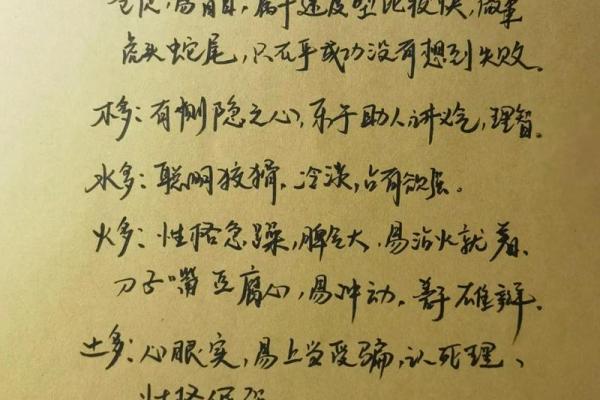 属于速度型比较快,做事
虎头蛇尾,只在乎成功没有想到失败。
木多:有恻隐之心,乐于助人讲义气,理智。
水多:聪明狡猾,冷淡,占有欲强。
火多:性格急躁,脾气大,易沾火就着,
刀子嘴豆腐心,易冲动,善于雄辩。
土多:心眼实,易上当受骗,认死理、
性格